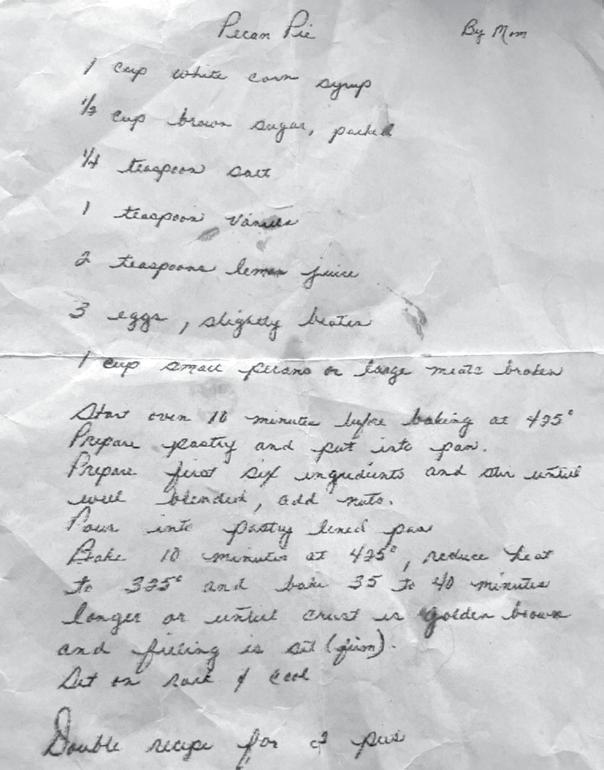 Pecan Pie By Mom
1 cup white corn syrup
1/3 cup brown sugar, packed
1/4 teaspoon salt
1 teaspoon vanilla
2 teaspoons lemon juice
3 eggs, slightly beaten
1 cup small pecans or large meats broken
Start oven 10 minutes before baking at 425°
Prepare pastry and put into pan.
Prepare first six ingredients and stir until
well blended, add nuts.
Pour into pastry lined pan
Bake 10 minutes at 425°, reduce heat
to 325° and bake 35 to 40 minutes
longer or until crust is golden brown
and filling is set (firm).
Set on rack & cool
Double recipe for 2 pies